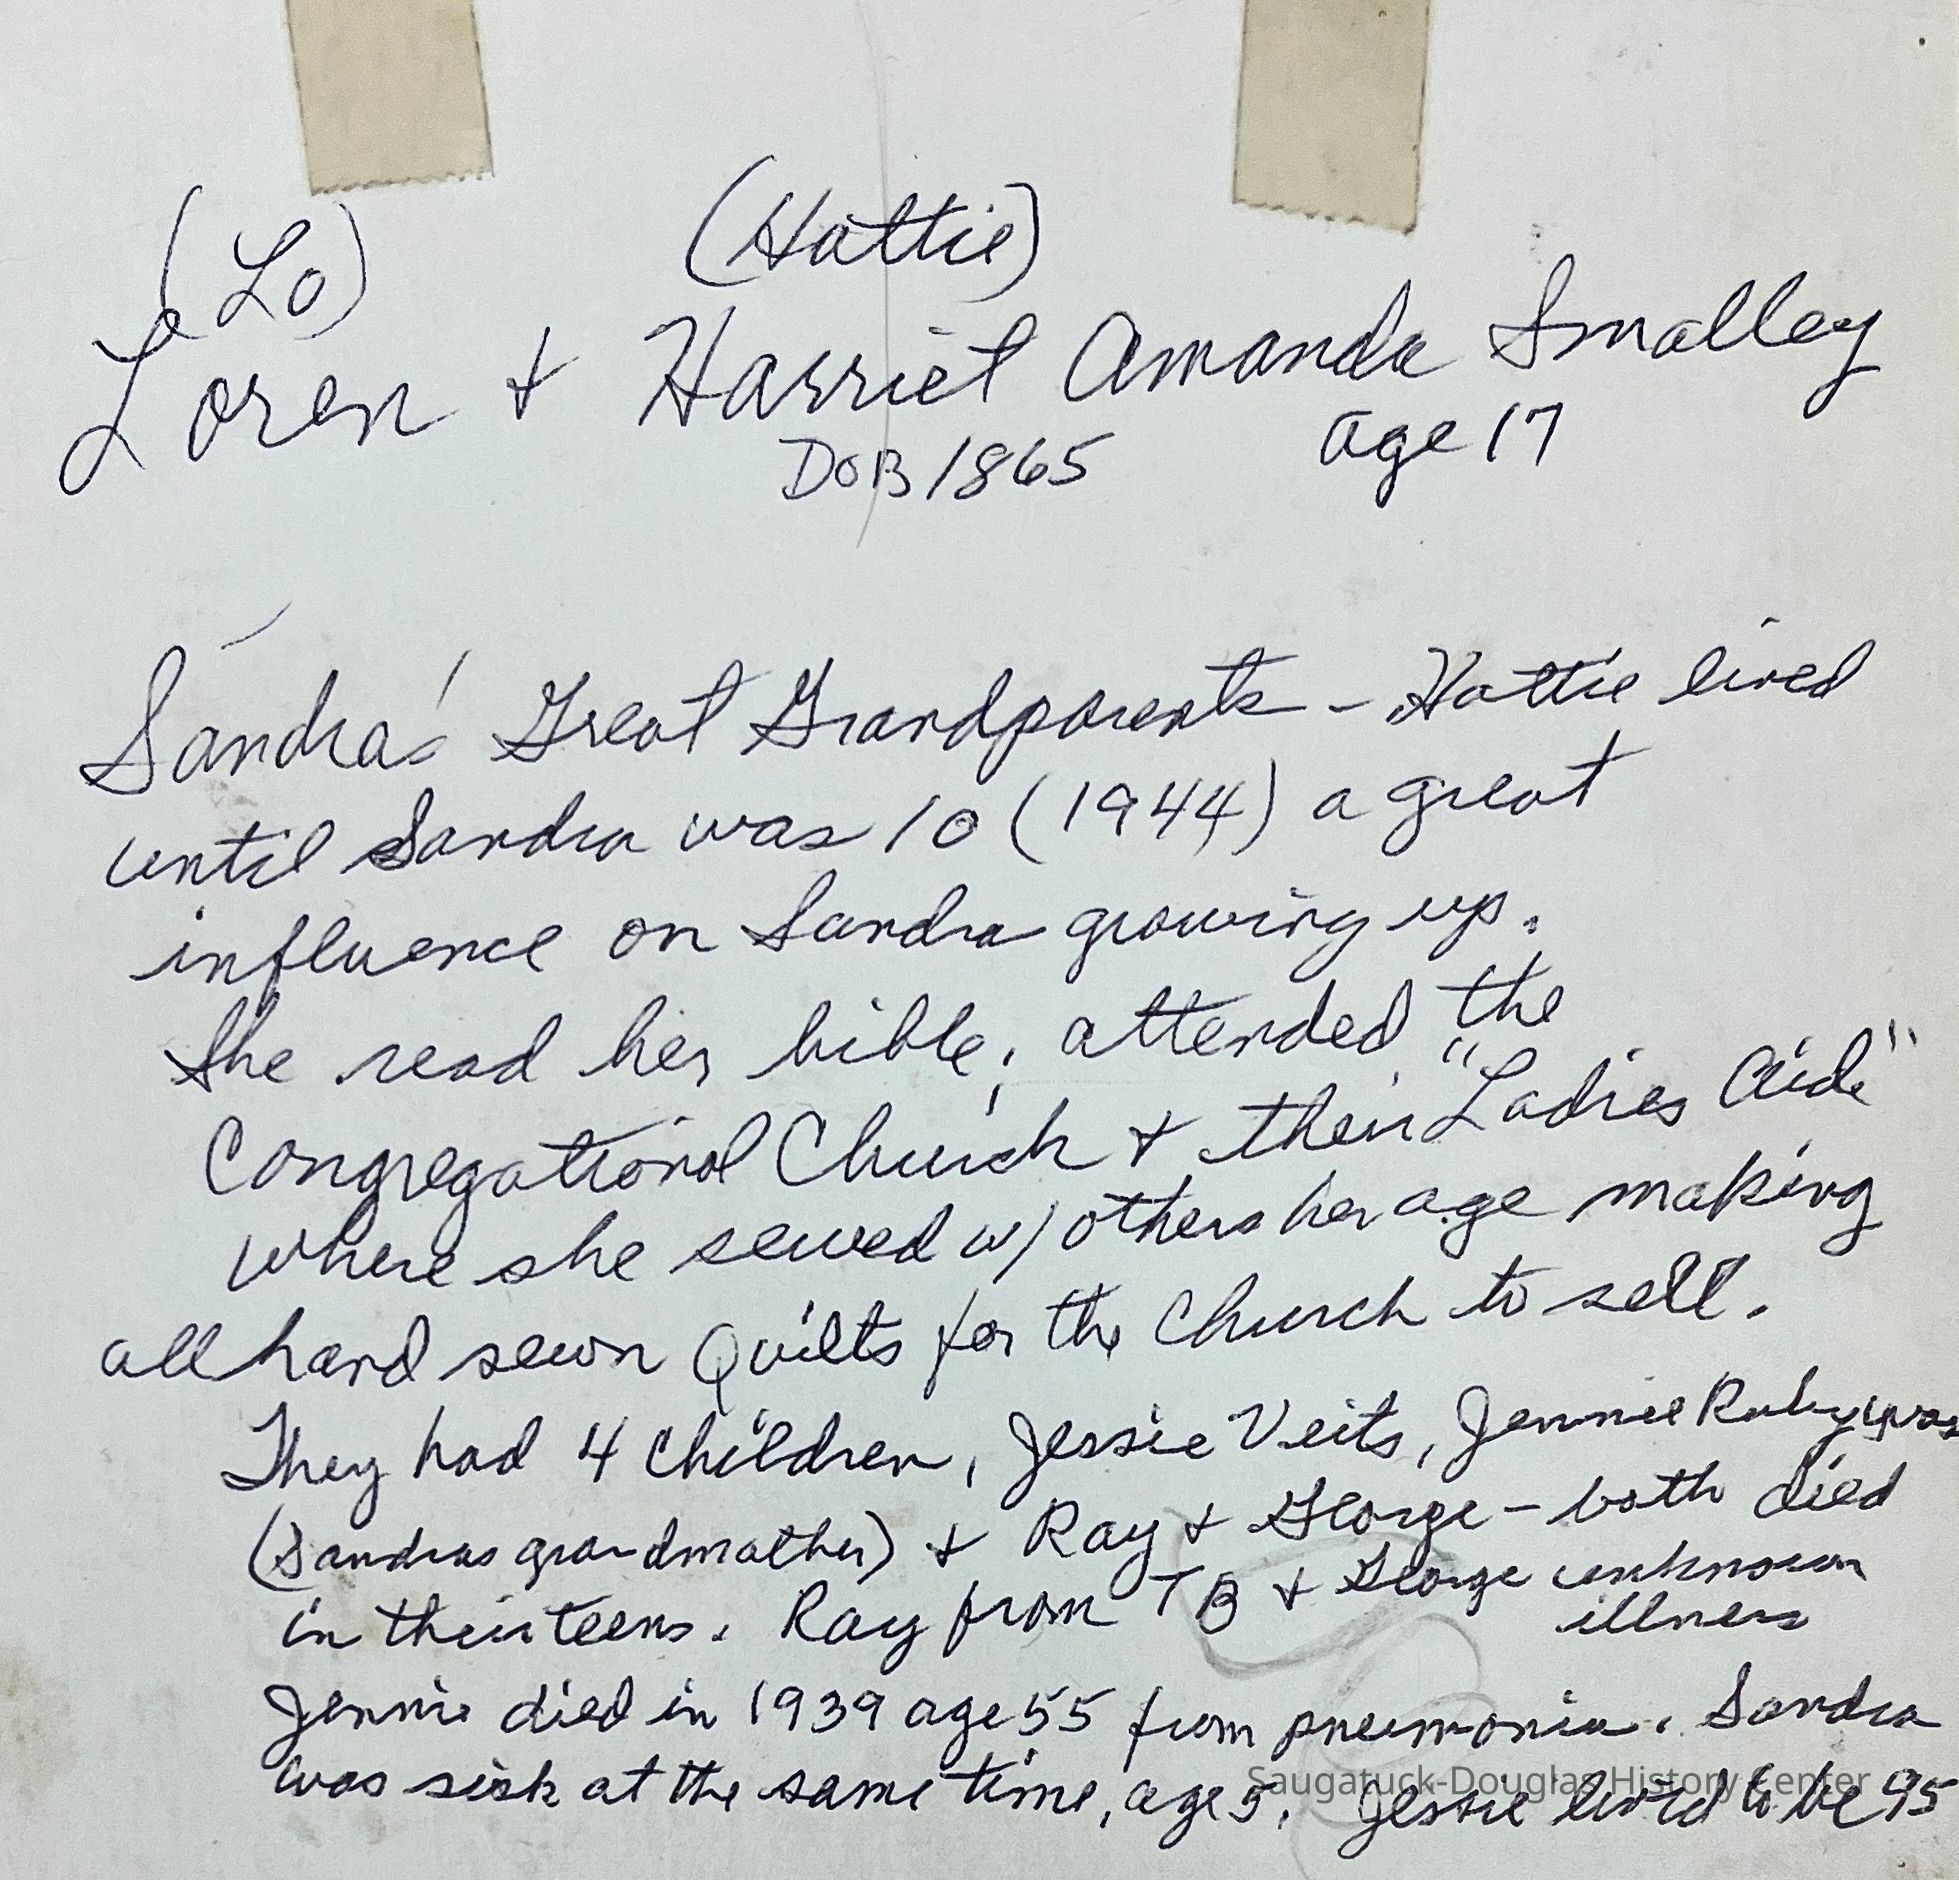 (Lo) (Hattie)
Loren + Harriet Amanda Smalley
DOB 1865 age 17
Sandra's Great Grandparents - Hattie lived
until Sandra was 10 (1944) a great
influence on Sandra growing up.
She read her bible, attended the
Congregational Church + their "Ladies Aide"
where she sewed w/ others her age making
all hand sewn Quilts for the Church to sell.
They had 4 children, Jessie Veits, Jennie Ruby was
(Sandras grandmother) + Ray + George - both died
in their teens. Ray from TB + George unknown
illness
Jennie died in 1939 age 55 from pneumonia. Sandra
was sick at the same time, age 5. Jessie lived to be 95
Saugatuck-Douglas History Center